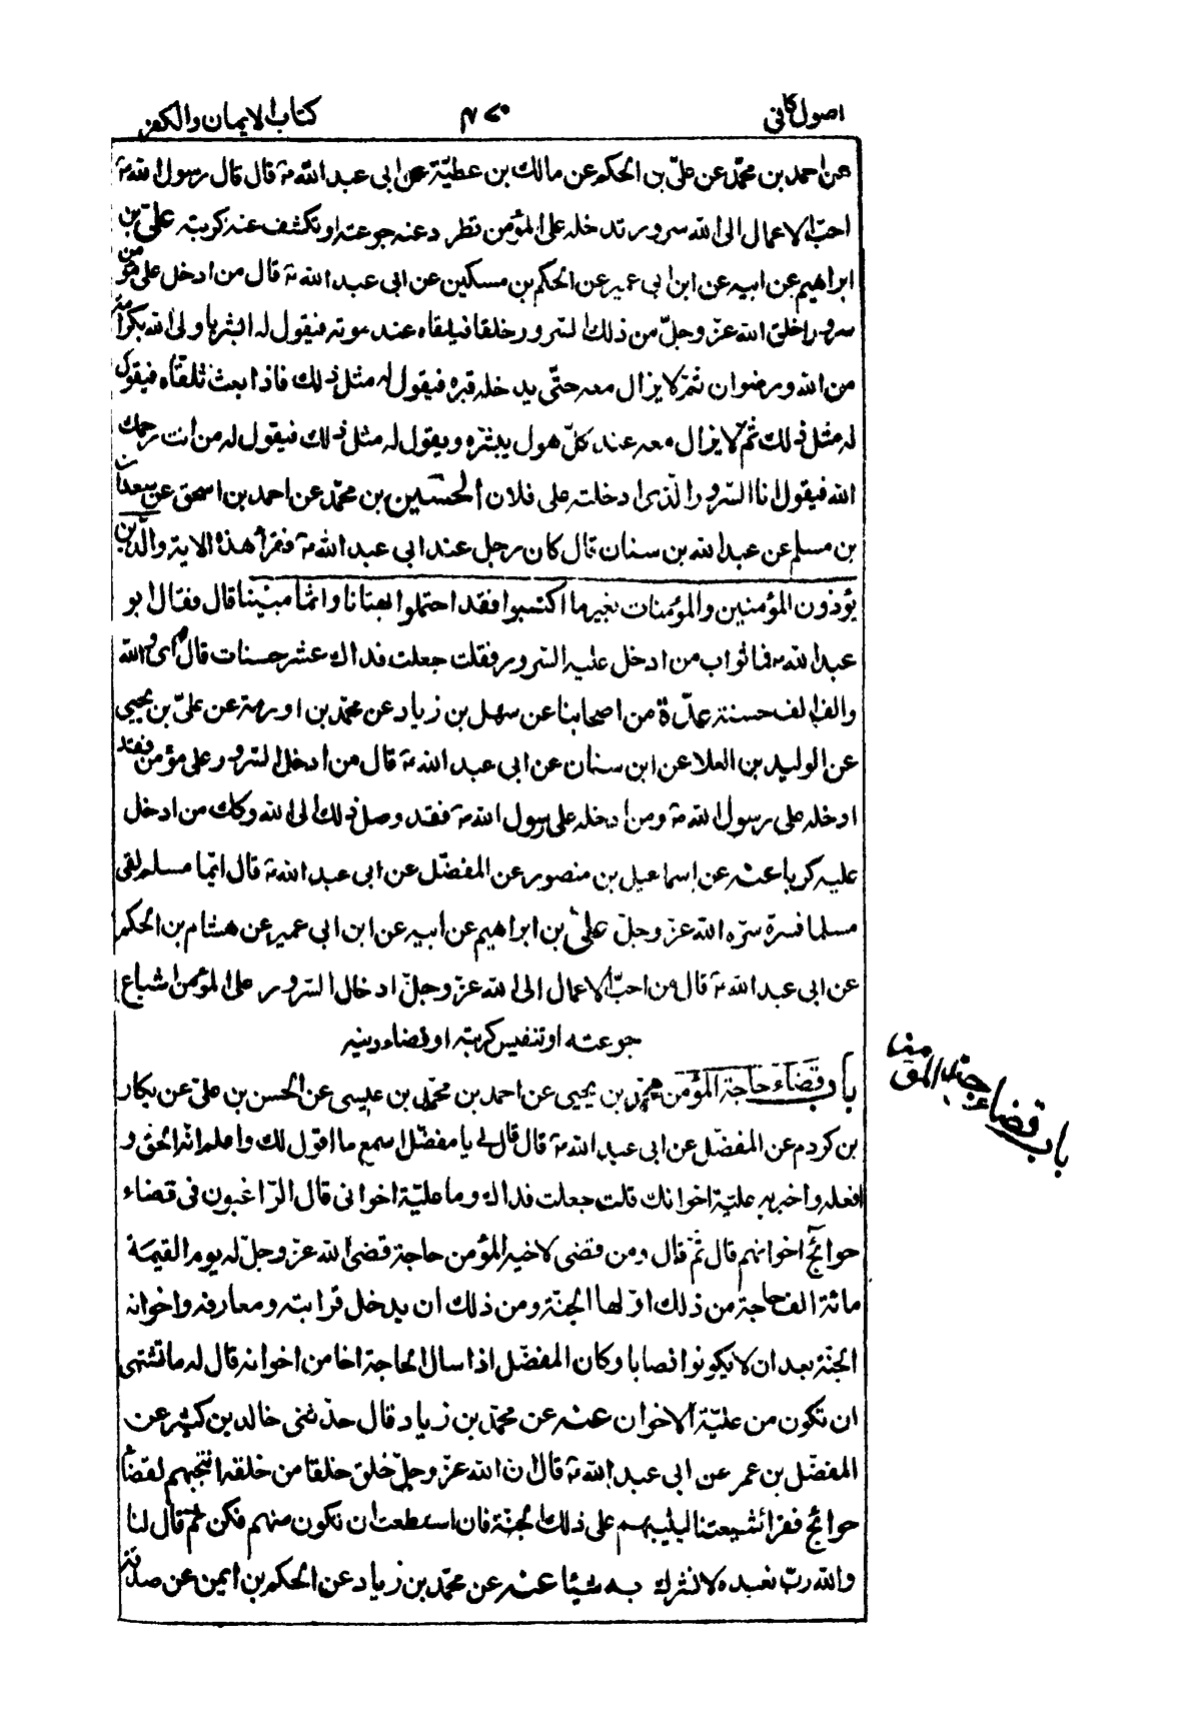 اصول كافى ٤٧٠ كتاب الايمان والكفر
عن احمد بن محمّد عن علىّ بن الحكم عن مالك بن عطيّة عن ابى عبد الله ع قال قال رسول الله ص
احبّ الاعمال الى الله سرور تدخله على المؤمن تطرد عنه جوعته او تكشف عنه كربته علىّ بن
ابراهيم عن ابيه عن ابن ابى عمير عن الحكم بن مسكين عن ابى عبد الله ع قال من ادخل على مؤمن
سرورا خلق الله عزّ وجلّ من ذلك السرور خلقا فيلقاه عند موته فيقول له ابشر يا ولى الله بكرامة
من الله ورضوان ثمّ لا يزال معه حتّى يدخله قبره فيقول له مثل ذلك فاذا بعث تلقاه فيقول
له مثل ذلك ثم لا يزال معه عند كلّ هول يبشره ويقول له مثل ذلك فيقول له من انت رحمك
الله فيقول انا السّرور الّذى ادخلته على فلان الحسين بن محمّد عن احمد بن اسحق عن سعدان
بن مسلم عن عبد الله بن سنان قال كان رجل عند ابى عبد الله ع فقرأ هذه الاية والّذين
يؤذون المؤمنين والمؤمنات بغير ما اكتسبوا فقد احتملوا بهتانا واثما مبينا قال فقال ابو
عبد الله ع فما ثواب من ادخل عليه السرور فقلت جعلت فداك عشر حسنات قال اى والله
والف الف حسنة عدّة من اصحابنا عن سهل بن زياد عن محمّد بن اورمة عن علىّ بن يحيى
عن الوليد بن العلا عن ابن سنان عن ابى عبد الله ع قال من ادخل السّرور على مؤمن فقد
ادخله على رسول الله ص ومن ادخله على رسول الله ص فقد وصل ذلك الى الله وكك من ادخل
عليه كربا عنه عن اسماعيل بن منصور عن المفضّل عن ابى عبد الله ع قال ايّما مسلم لقى
مسلما فسرّه سرّه الله عزّ وجلّ علىّ بن ابراهيم عن ابيه عن ابن ابى عمير عن هشام بن الحكم
عن ابى عبد الله ع قال من احبّ الاعمال الى الله عزّ وجلّ ادخال السّرور على المؤمن اشباع
جوعته او تنفيس كربته او قضاء دينه
باب قضاء حاجة المؤمن محمّد بن يحيى عن احمد بن محمّد بن عيسى عن الحسن بن على عن بكار
بن كردم عن المفضّل عن ابى عبد الله ع قال قال لى يا مفضّل اسمع ما اقول لك واعلم انّه الحق و
افعله واخبر به علّية اخوانك قلت جعلت فداك وما علّية اخوانى قال الرّاغبون فى قضاء
حوائج اخوانهم قال ثمّ قال ومن قضى لاخيه المؤمن حاجة قضى الله عزّ وجلّ له يوم القيمة
مائة الف حاجة من ذلك اوّلها الجنّة ومن ذلك ان يدخل قرابته ومعارفه واخوانه
الجنّة بعد ان لا يكونوا نصابا وكان المفضّل اذا سال الحاجة اخا من اخوانه قال له ما تشتهى
ان تكون من علّية الاخوان عنه عن محمّد بن زياد قال حدّثنى خالد بن يزيد عن
المفضّل بن عمر عن ابى عبد الله ع قال ان الله عزّ وجلّ خلق خلقا من خلقه انتجبهم لقضاء
حوائج فقراء شيعتنا ليثيبهم على ذلك الجنّة فان استطعت ان تكون منهم فكن ثمّ قال لنا
والله ربّ نعبده لا نشرك به شيئا عنه عن محمّد بن زياد عن الحكم بن ايمن عن صدقة
باب قضاء حاجة المؤمن